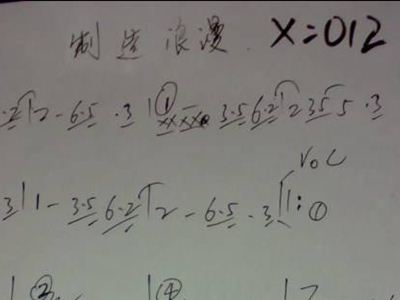 制造浪漫. X=012
·2|2-6·5·3|① xxxx 3·56·2|2355·3
VOC
3|1-3·56·2|2-6·5·3||:①
|② |④ |7